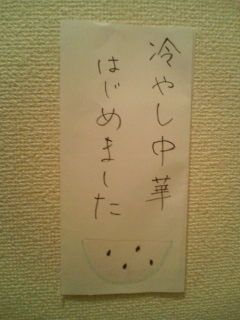 冷やし中華
はじめました